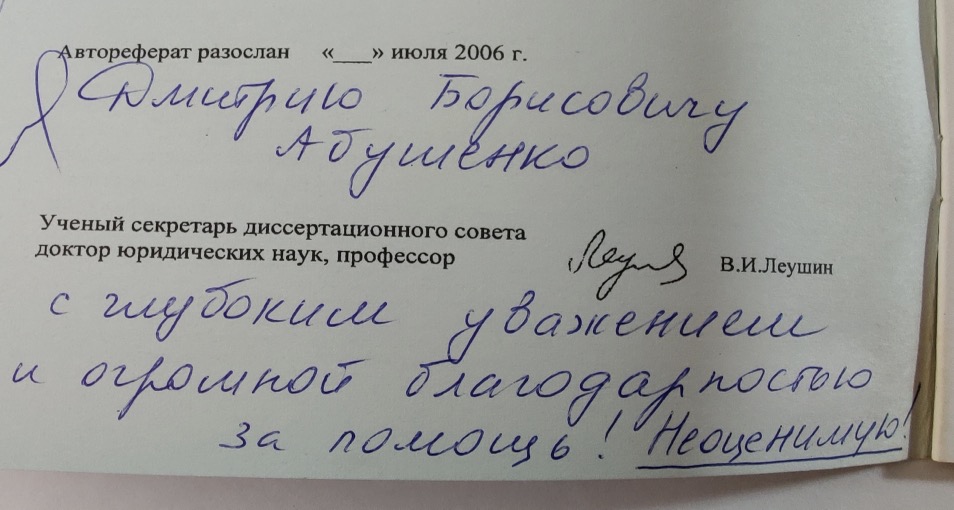 Автореферат разослан «___» июля 2006 г.
Дмитрию Борисовичу
Абушенко
Ученый секретарь диссертационного совета
доктор юридических наук, профессор В.И.Леушин
с глубоким уважением
и огромной благодарностью
за помощь! Неоценимую!